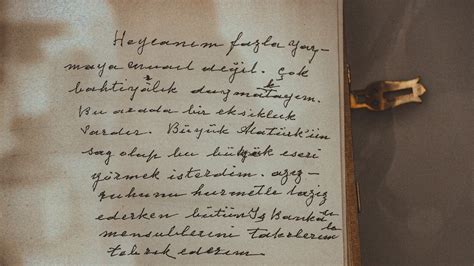 Heyecanım fazla yaz-
maya müsait değil. Çok
bahtiyarlık duymaktayım.
Bu arada bir eksiklik
vardır. Büyük Atatürk'ün
sağ olup bu büyük eseri
görmek isterdim. aziz
ruhunu hürmetle taziz
ederken bütün İş Bankası
mensublarını takdirlerimle
tebrik ederim.